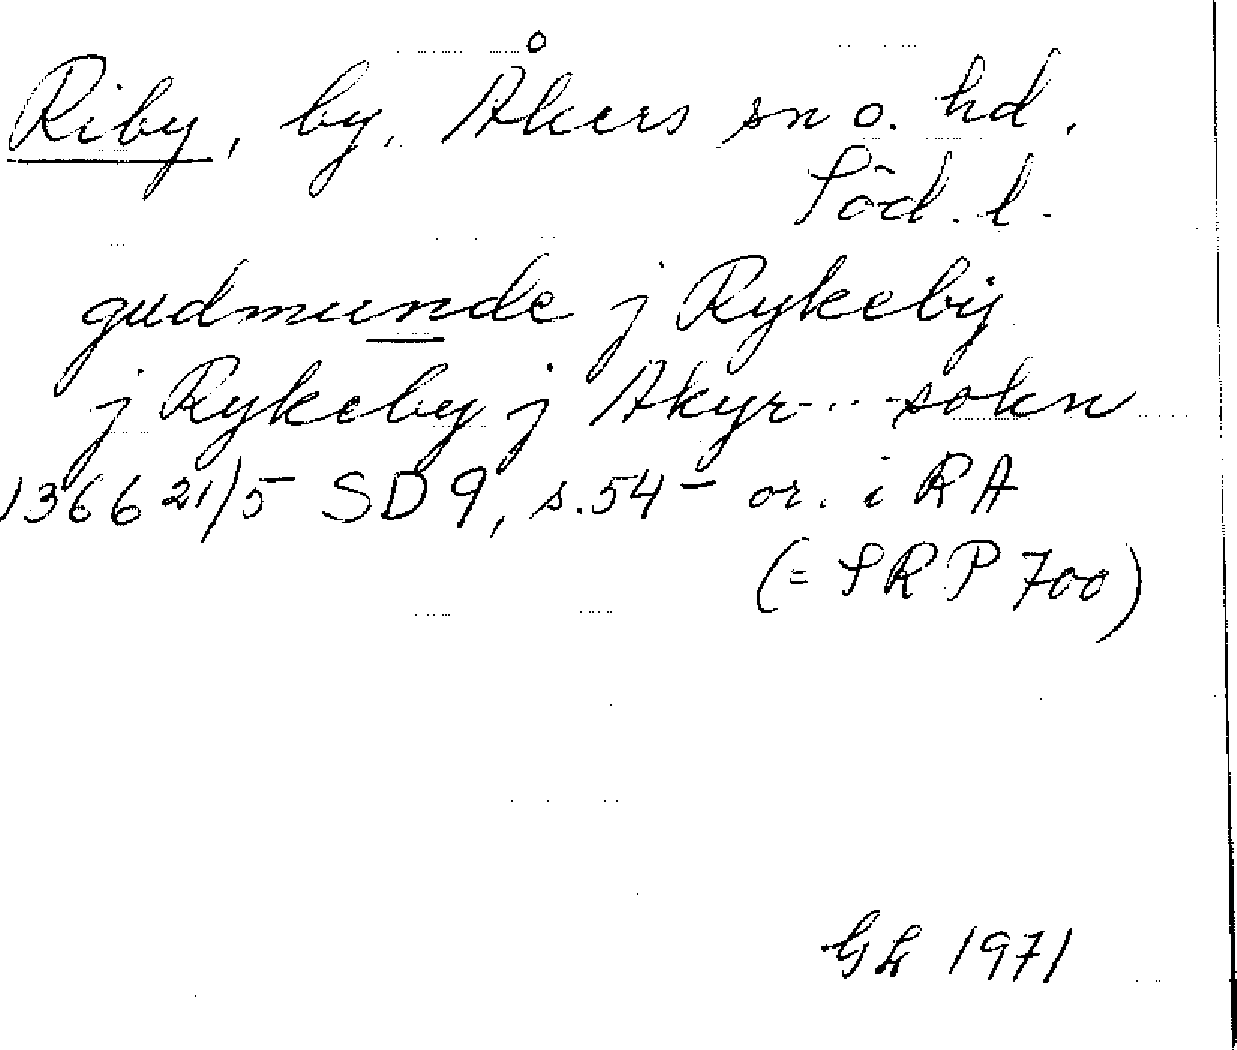 Riby, by, Åkers sn o. hd,
Söd. l.
gudmunde j Rykebij
j Rykeby j Akyr... sokn
1366 21/5 SD 9, s. 54 - or. i RA
(= SRP 700)
GL 1971